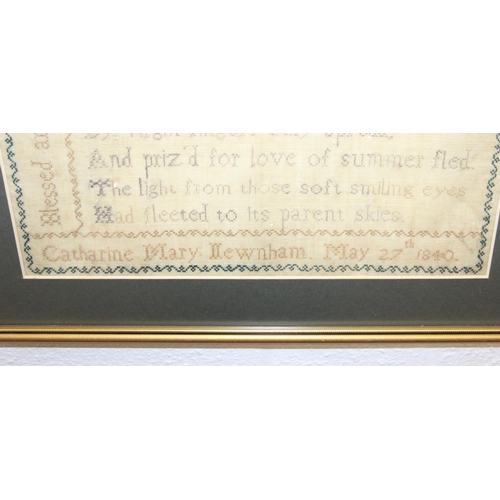 Blessed
And priz'd for love of summer fled.
The light from those soft smiling eyes
Had fleeted to its parent skies.
Catharine Mary Newnham. May 27th 1840.